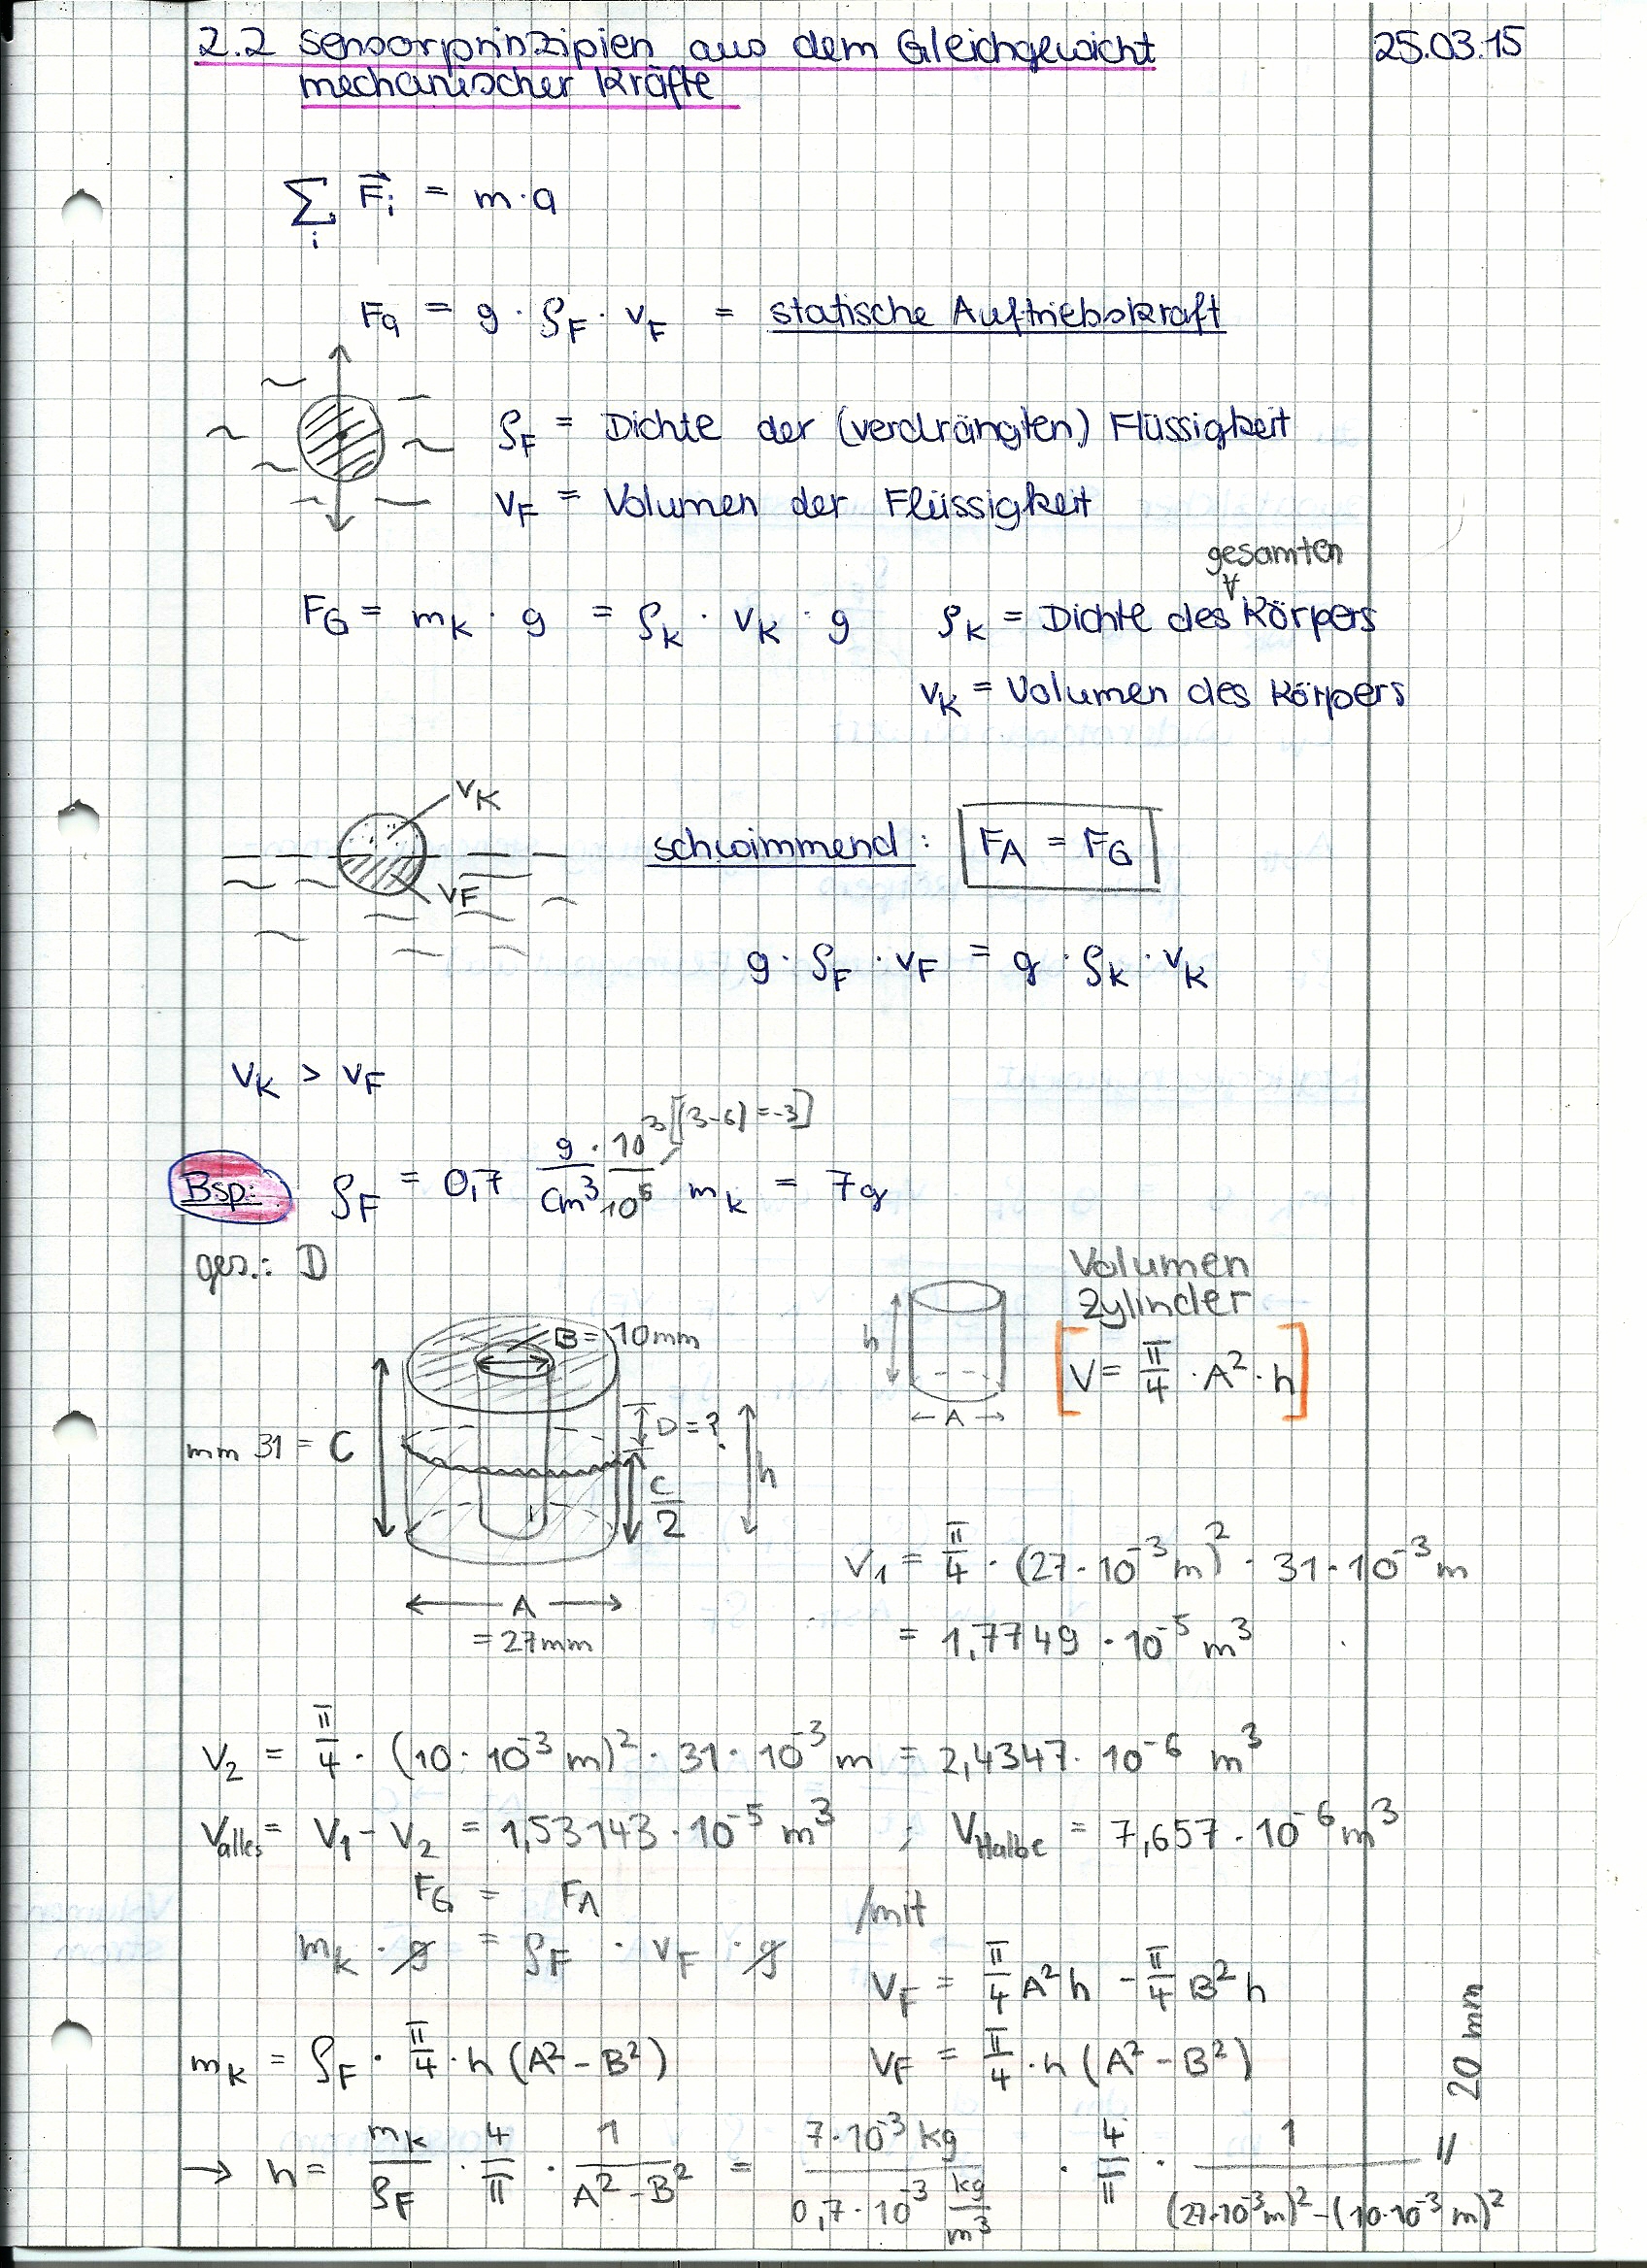 2.2 Sensorprinzipien aus dem Gleichgewicht 25.03.15
mechanischer Kräfte
∑ᵢ F⃗ᵢ = m·a
Fa = g · ρF · VF = statische Auftriebskraft
ρF = Dichte der (verdrängten) Flüssigkeit
VF = Volumen der Flüssigkeit
gesamten
FG = mK · g = ρK · VK · g ρK = Dichte des Körpers
VK = Volumen des Körpers
VK
schwimmend: FA = FG
VF
g · ρF · VF = g · ρK · VK
VK > VF
[(3-6) = -3]
Bsp: ρF = 0,7 g/cm³ · 10³/10⁶ mK = 7g
ges.: D
Volumen
Zylinder
B = 10mm
h
V = π/4 · A² · h
A
mm 31 = C
D = ?
h
C/2
V1 = π/4 · (27·10⁻³ m)² · 31·10⁻³ m
A
= 27mm
= 1,7749 · 10⁻⁵ m³
V2 = π/4 · (10·10⁻³ m)² · 31·10⁻³ m = 2,4347 · 10⁻⁶ m³
Valles = V1 - V2 = 1,53143 · 10⁻⁵ m³ ; VHalbe = 7,657 · 10⁻⁶ m³
FG = FA /mit
mK · g = ρF · VF · g
VF = π/4 A² h - π/4 B² h
mK = ρF · π/4 · h (A² - B²) VF = π/4 · h (A² - B²)
20 mm
→ h = mK/ρF · 4/π · 1/(A² - B²) = 7·10⁻³ kg / 0,7·10⁻³ kg/m³ · 4/π · 1/((27·10⁻³m)² - (10·10⁻³ m)²) =